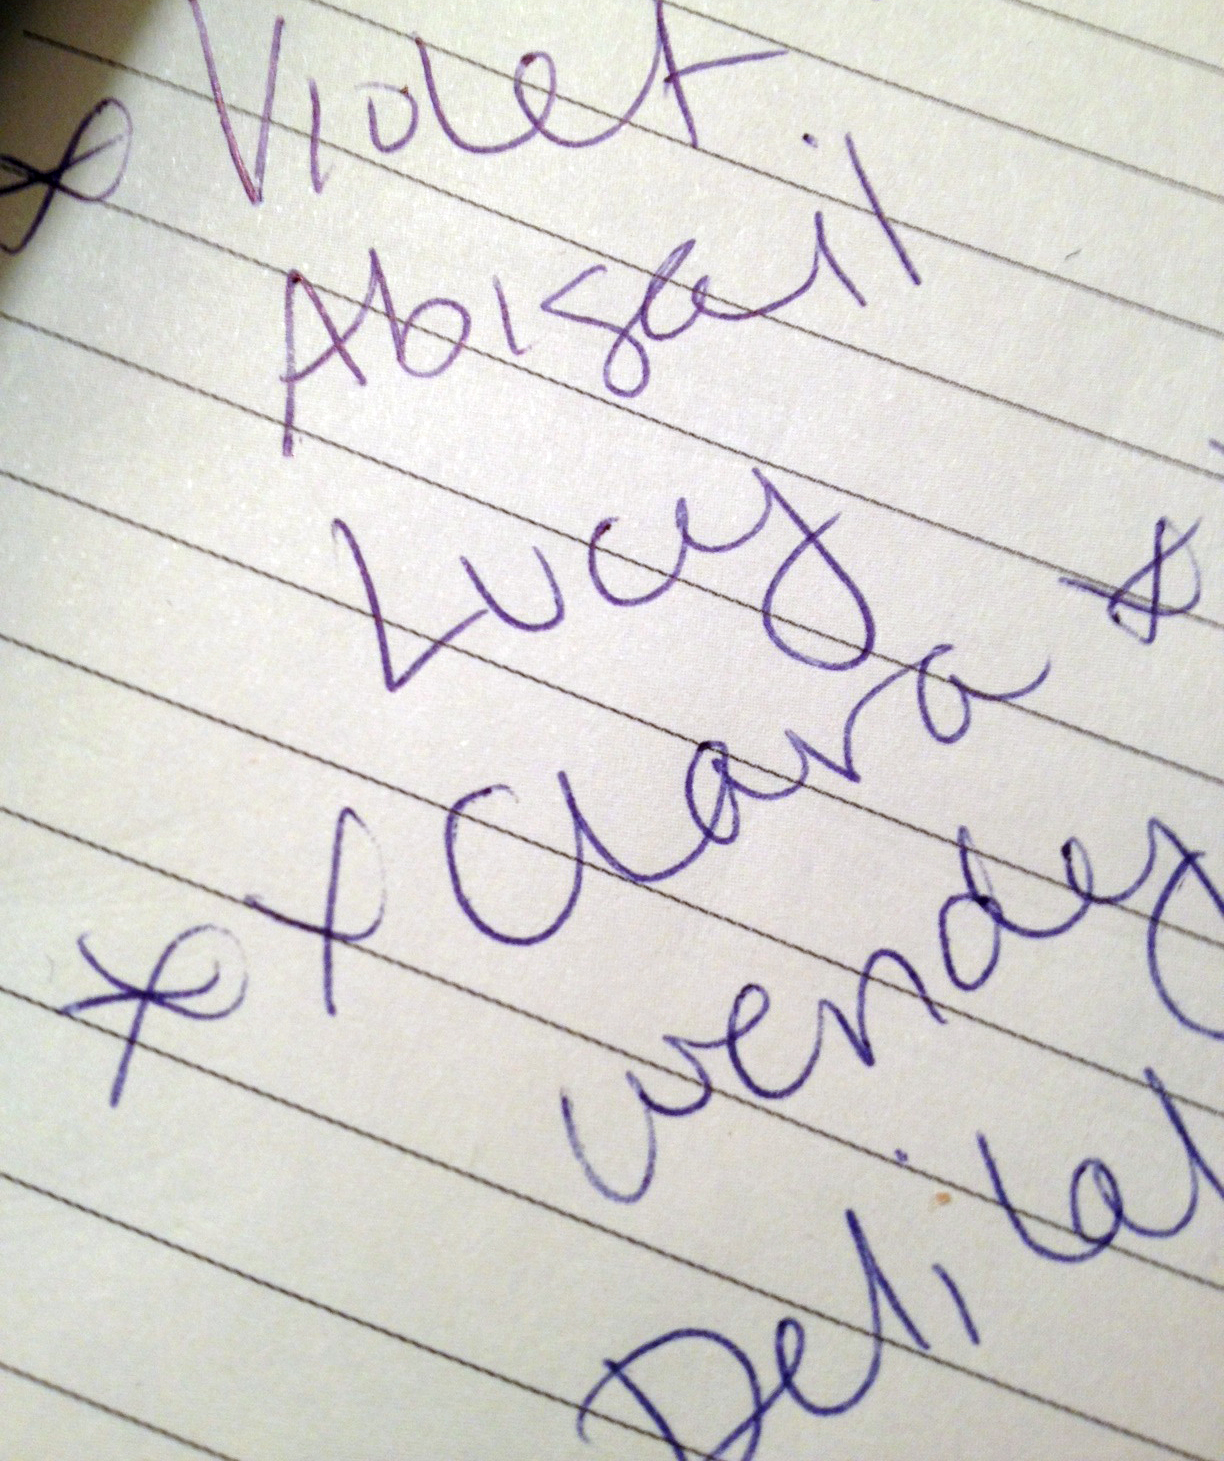 Violet
Abigail
Lucy
Clara
Wendy